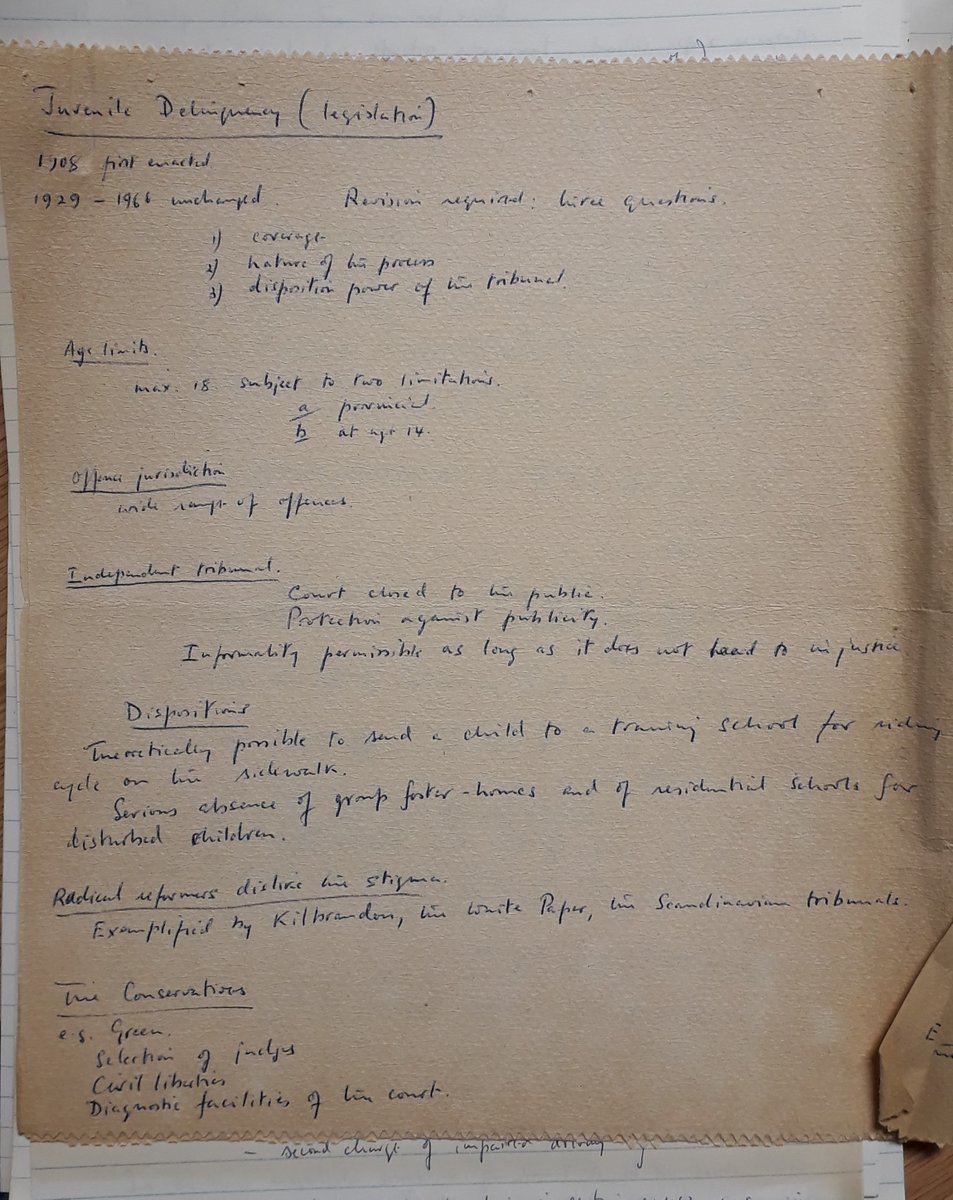 Juvenile Delinquency (legislation)
1908 first enacted
1929 - 1966 unchanged. Revision required: three questions.
1) coverage
2) nature of the process
3) disposition power of the tribunal.
Age limits.
max. 18 subject to two limitations.
a provincial.
b at age 14.
Offence jurisdiction
wide range of offences.
Independent tribunal.
Court closed to the public.
Protection against publicity.
Informality permissible as long as it does not lead to injustice
Dispositions
Theoretically possible to send a child to a training school for riding
cycle on the sidewalk.
Serious absence of group foster-homes and of residential schools for
disturbed children.
Radical reformers dislike the stigma.
Exemplified by Kilbrandon, the White Paper, the Scandinavian tribunals.
The Conservatives
e.g. Green.
Selection of judges
Civil liberties
Diagnostic facilities of the court.
- second charge of impaired driving